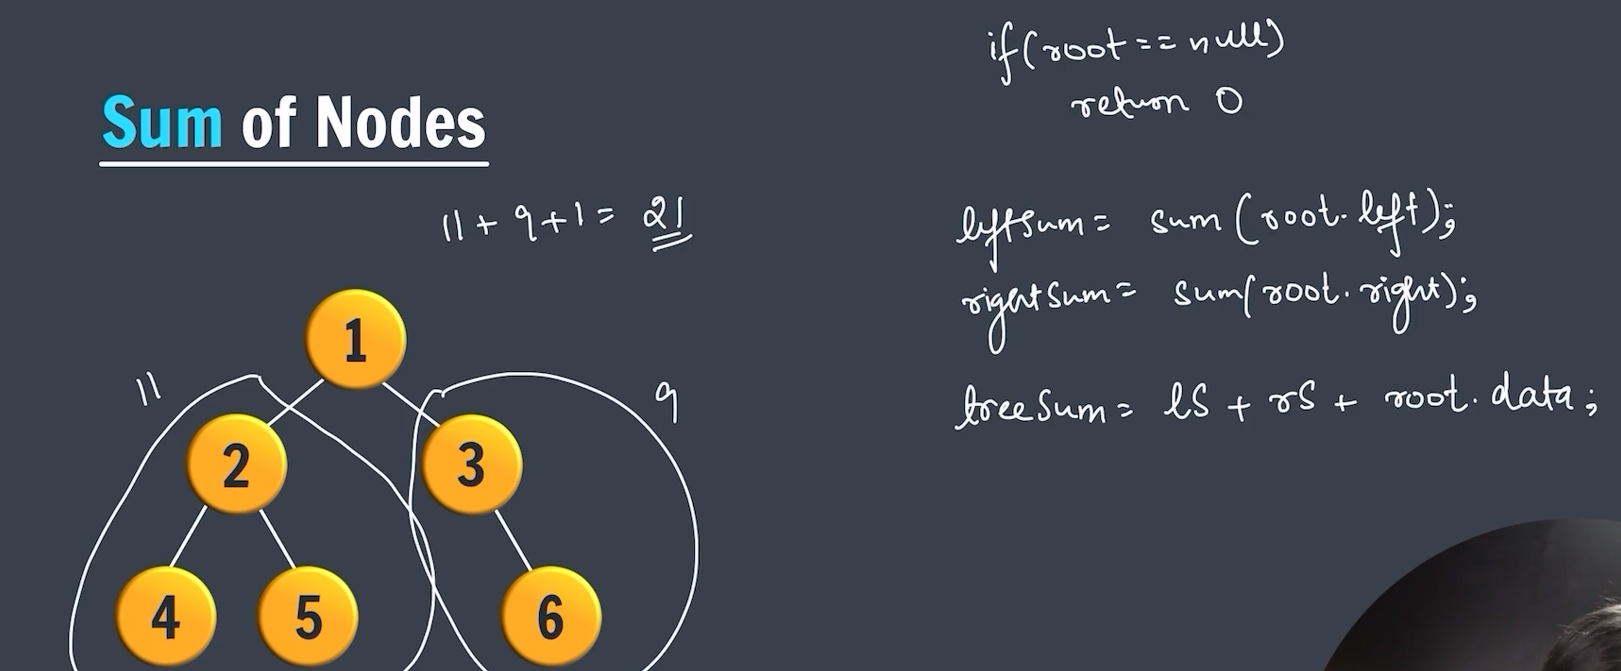 Sum of Nodes
11 + 9 + 1 = 21
1
11
9
2
3
4
5
6
if(root == null)
return 0
leftsum = sum (root.left);
rightSum = sum(root.right);
treeSum = lS + rS + root.data;